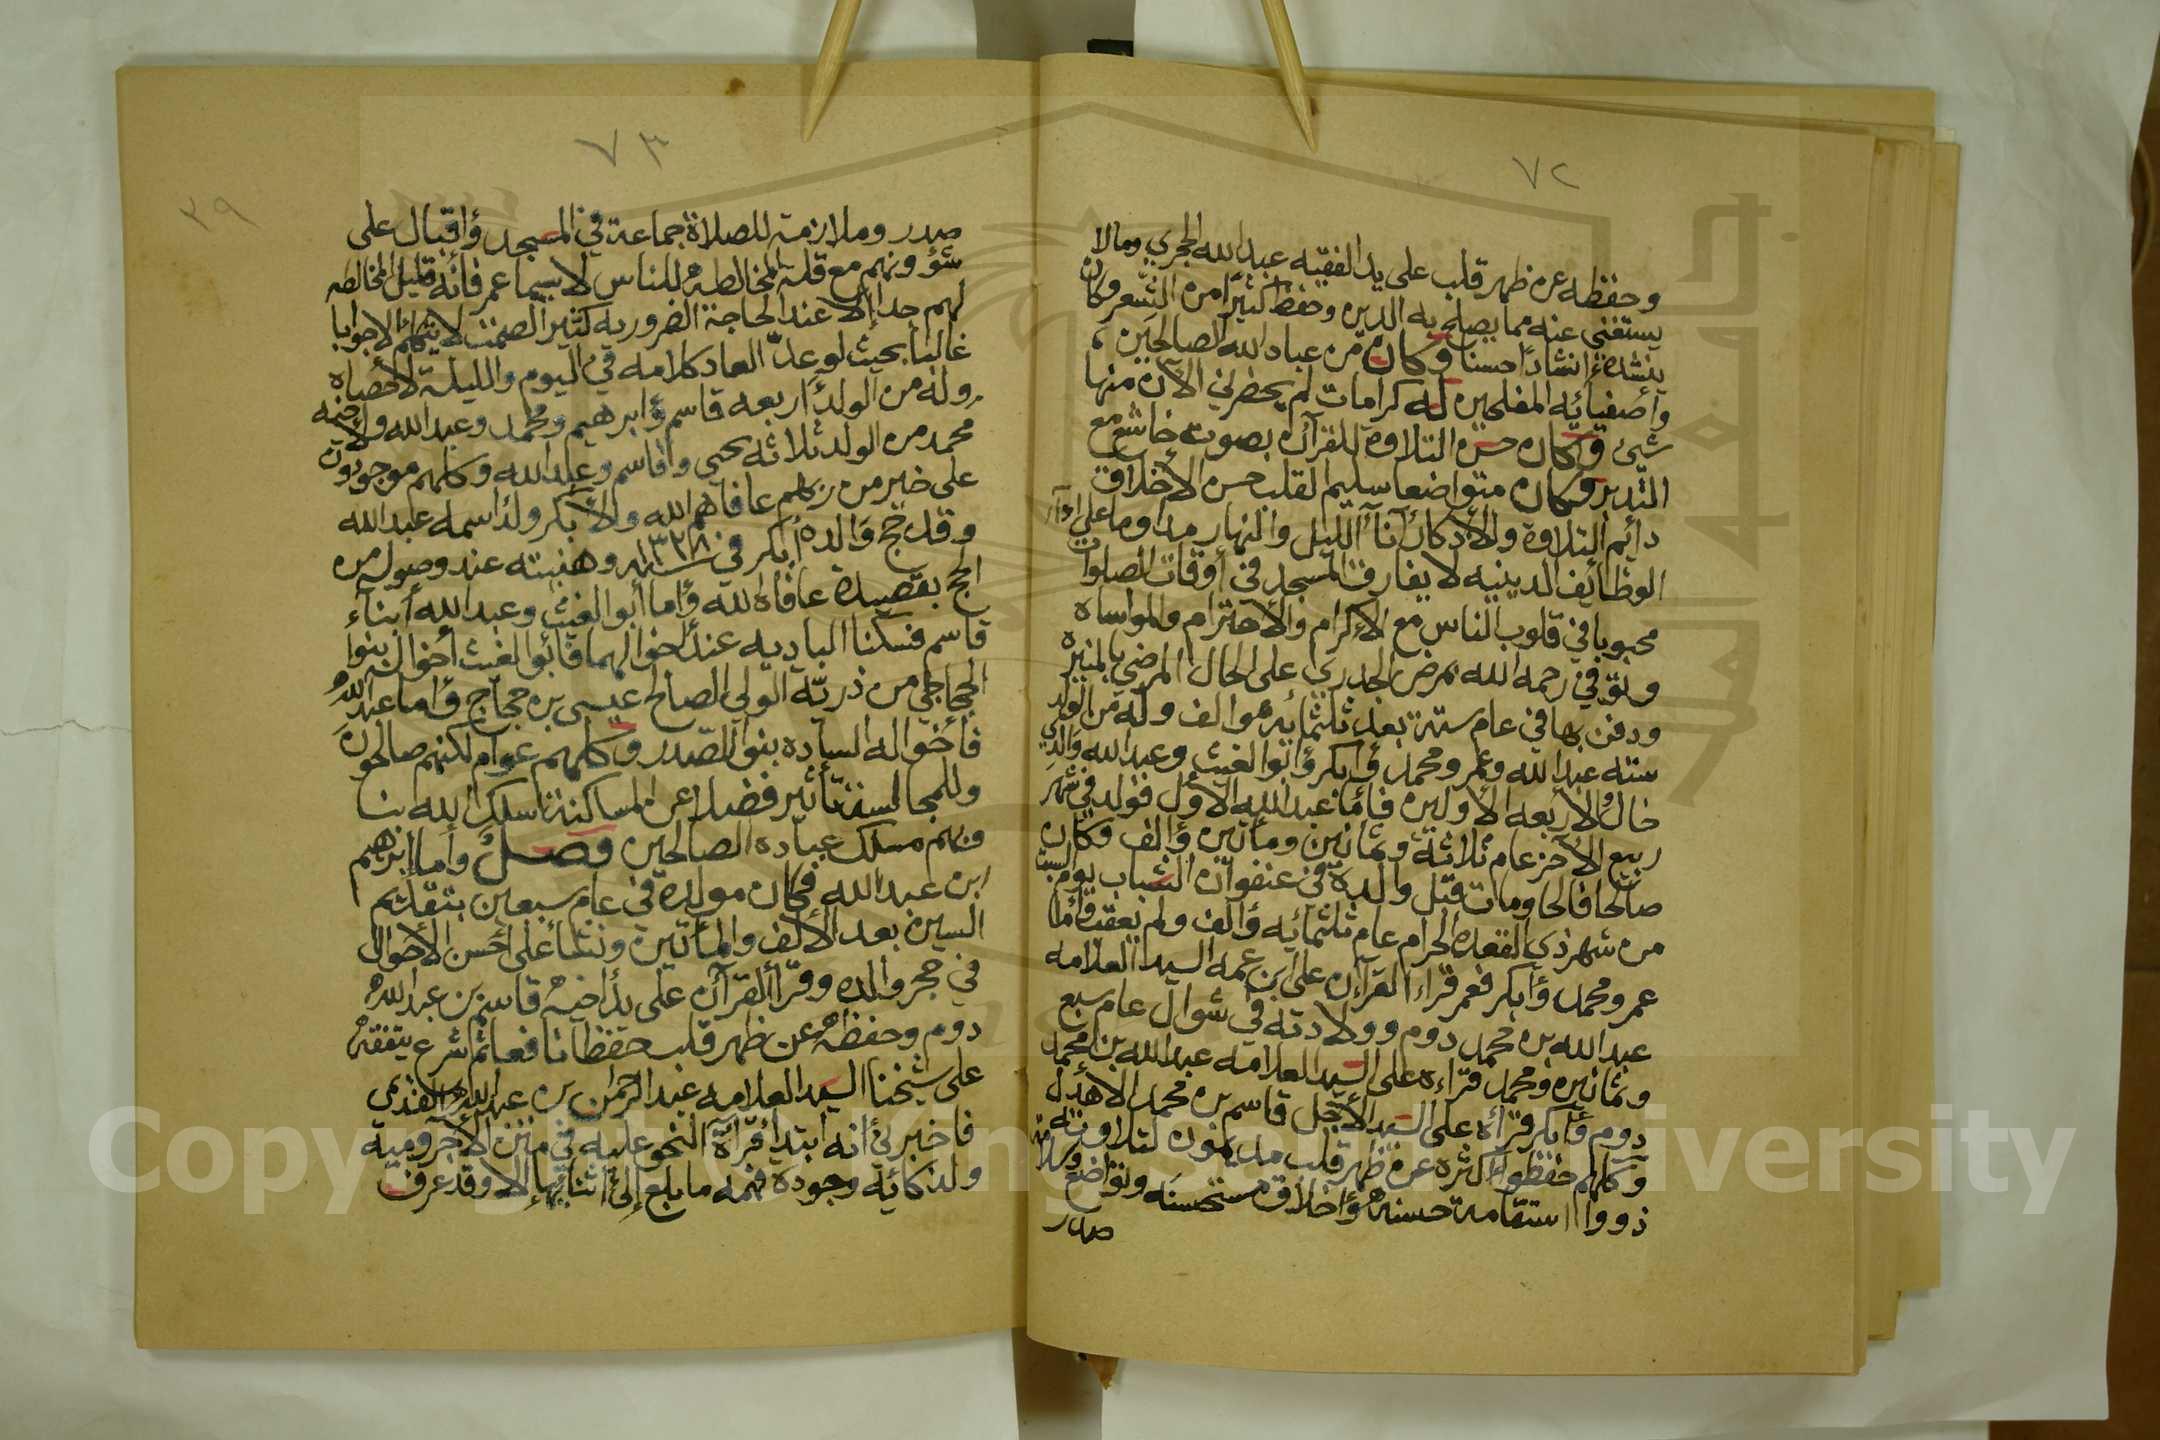 ٧٢
وحفظه عن ظهر قلب على يد الفقيه عبدالله الحجري ومالا
يستغنى عنه مما يصلح به الدين وحفظ كثيرا من الشعر وكان
ينشده انشادا حسنا وكان من عباد الله الصالحين
وأصفيائه المفلحين له كرامات لم يحضرني الآن منها
شيئ وكان حسن التلاوة للقرآن بصوت خاشع مع
التدبر وكان متواضعا سليم القلب حسن الأخلاق
دائم التلاوة والأذكار آناء الليل والنهار مداوما على
الوظائف الدينيه لا يفارق المسجد في أوقات الصلوات
محبوبا في قلوب الناس مع الإكرام والأحترام والمواساه
وتوفي رحمه الله بمرض الجدري على الحال المرضي بالمنيرة
ودفن بها في عام ستة بعد ثلثمائه والف وله من الولد
سته عبدالله وعمر ومحمد وأبكر وأبوالغيث وعبدالله والدي
خال الأربعه الأولين فأما عبدالله الأول فولد في شهر
ربيع الآخر عام ثلاثة وثمانين ومأتين وألف وكان
صالحا فالحا ومات قبل والده في عنفوان الشباب يوم السبت
من شهر ذي القعدة الحرام عام ثلثمائه وألف ولم يعقب وأما
عمر ومحمد وأبكر فعمر قرأ القرآن على ابن عمه السيد العلامه
عبدالله بن محمد دوم وولادته في شوال عام سبع
وثمانين ومحمد قراءه على السيد العلامه عبدالله بن محمد
دوم وأبكر قرأه على السيد الأجل قاسم بن محمد الاهدل
وكلهم حفظوا أكثره عن ظهر قلب مديمون لتلاوته
ذووا استقامة حسنه وأخلاق مستحسنه وتواضع وسلامة
صدر
٧٣
٣٩
صدر وملازمة للصلاة جماعة في المسجد وإقبال على
شؤونهم مع قلة المخالطة للناس لاسيما عمر فانه قليل المخالطه
لهم جدا إلا عند الحاجة الضروريه كثير الصمت لا يتكلم إلا جوابا
غالبا بحيث لو عد العاد كلامه في اليوم والليلة لأحصاه
وله من الولد أربعه قاسم وابرهيم ومحمد وعبدالله ولأخيه
محمد من الولد ثلاثه يحيى وقاسم وعبدالله وكلهم موجودون
على خير من ربهم عافاهم الله ولأبكر ولد اسمه عبدالله
وقد حج والده أبكر في سنة ١٣٢٨ وهنيته عند وصوله من
الحج بقصيدة عافاه الله وأما أبوالغيث وعبدالله أبناء
قاسم فسكنا الباديه عند أخوالهما فأبوالغيث أخواله بنوا
الحجاجي من ذرية الولي الصالح عيسى بن حجاج وأما عبدالله
فأخواله الساده بنوا الصدر وكلهم عوام لكنهم صالحون
وللمجالسة تأثير فضلا عن المساكنة سلك الله بنا
وبهم مسلك عباده الصالحين فصل وأما إبرهيم
ابن عبدالله فكان مولده في عام سبعين بتقديم
السين بعد الألف والمأتين ونشأ على أحسن الأحوال
في حجر والده وقرأ القرآن على يد أخيه قاسم بن عبدالله
دوم وحفظه عن ظهر قلب حفظا نافعا ثم شرع يتفقه
على شيخنا السيد العلامه عبدالرحمن بن عبدالله القديمي
فأخبرني أنه ابتدأ قرآة النحو عليه في متن الأجروميه
ولذكائه وجودة فهمه ما بلغ إلى أثنائها إلا وقد عرف
Copyright © King Saud University